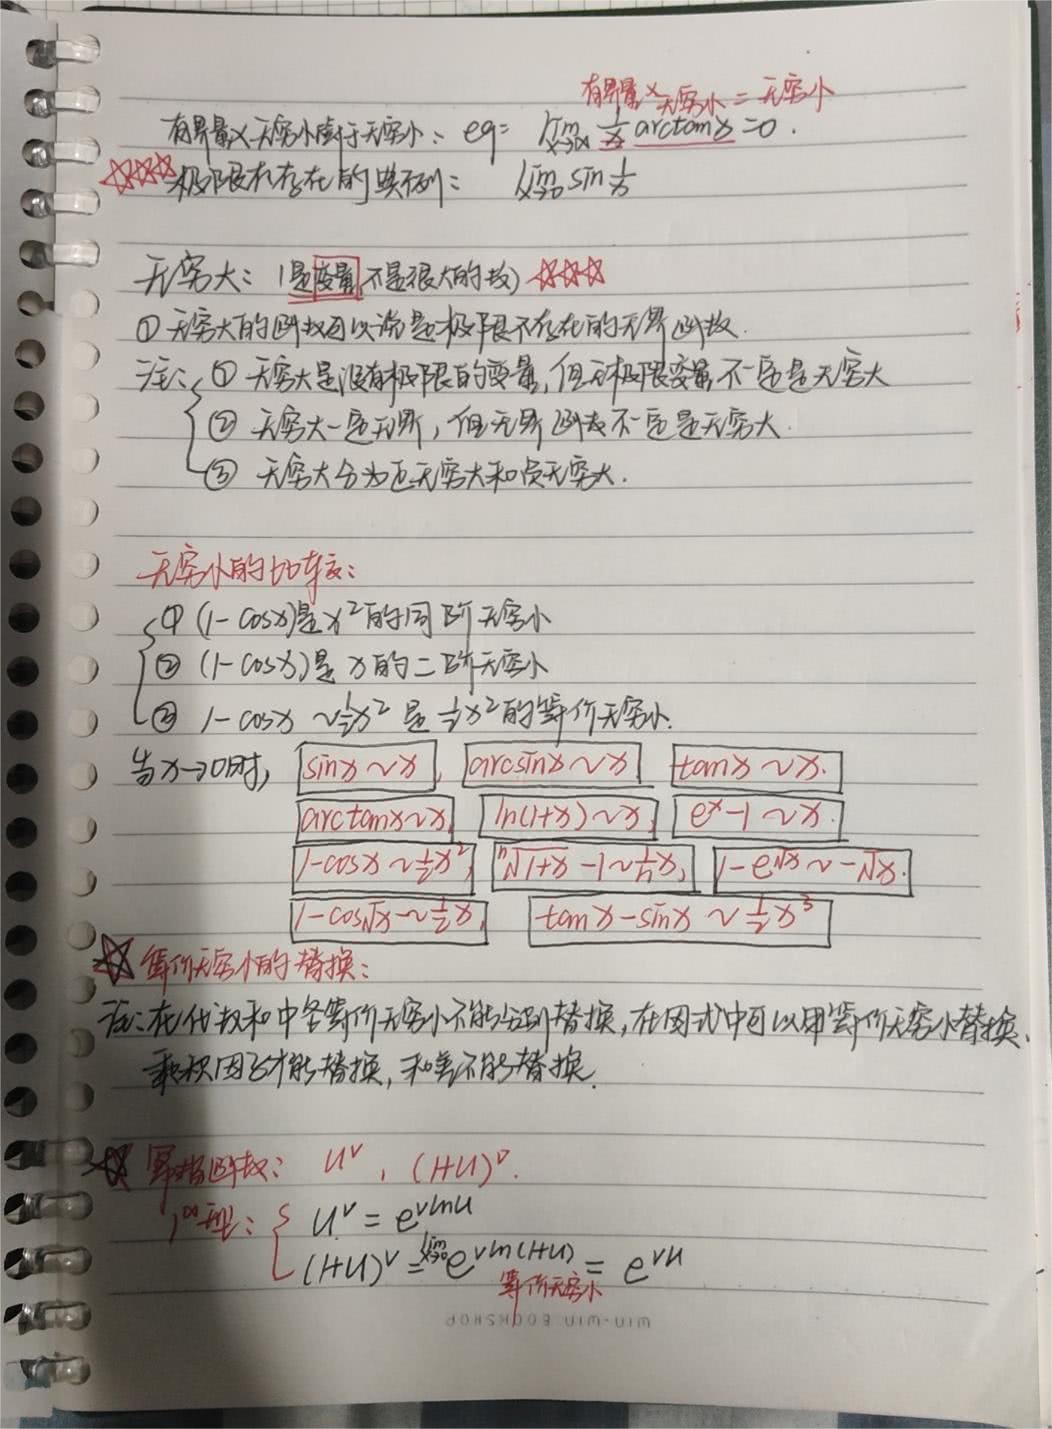 有界量×无穷小=无穷小
有界量×无穷小等于无穷小: eg: lim x→∞ 1/x arctanx=0.
☆☆☆极限不存在的典例: lim x→0 sin 1/x
无穷大: (是变量,不是很大的数) ☆☆☆
① 无穷大的函数可以说是极限不存在的无界函数.
注: ① 无穷大是没有极限的变量,但无极限变量不一定是无穷大
② 无穷大一定无界,但无界函数不一定是无穷大.
③ 无穷大分为正无穷大和负无穷大.
无穷小的比较:
① (1-cosx)是x²的同阶无穷小
② (1-cosx)是x的二阶无穷小
③ 1-cosx ~ ½x² 是½x²的等价无穷小.
当x→0时, sinx~x, arcsinx~x tanx~x.
arctanx~x, ln(1+x)~x, eˣ-1~x.
1-cosx~½x², ⁿ√1+x -1~1/n x, 1-e^√x ~ -√x.
1-cos√x ~ ½x, tanx-sinx ~ ½x³
☆ 等价无穷小的替换:
注:在代数和中各等价无穷小不能分别替换,在因式中可以用等价无穷小替换.
乘积因子才能替换,和差不能替换.
☆ 幂指函数: u^v , (1+u)^v.
1^∞型: u^v = e^vlnu
(1+u)^v = lim x→0 e^vln(1+u) = e^vu
等价无穷小
WIN-WIN BOOKSHOP